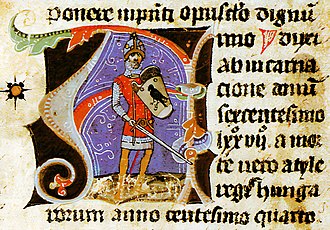 ponere inpñti opusclo dignũ
ab incarna
cione
sexcentesimo
lxx vij. a mor
te vero atyle
regis hunga
rorum anno centesimo quarto.